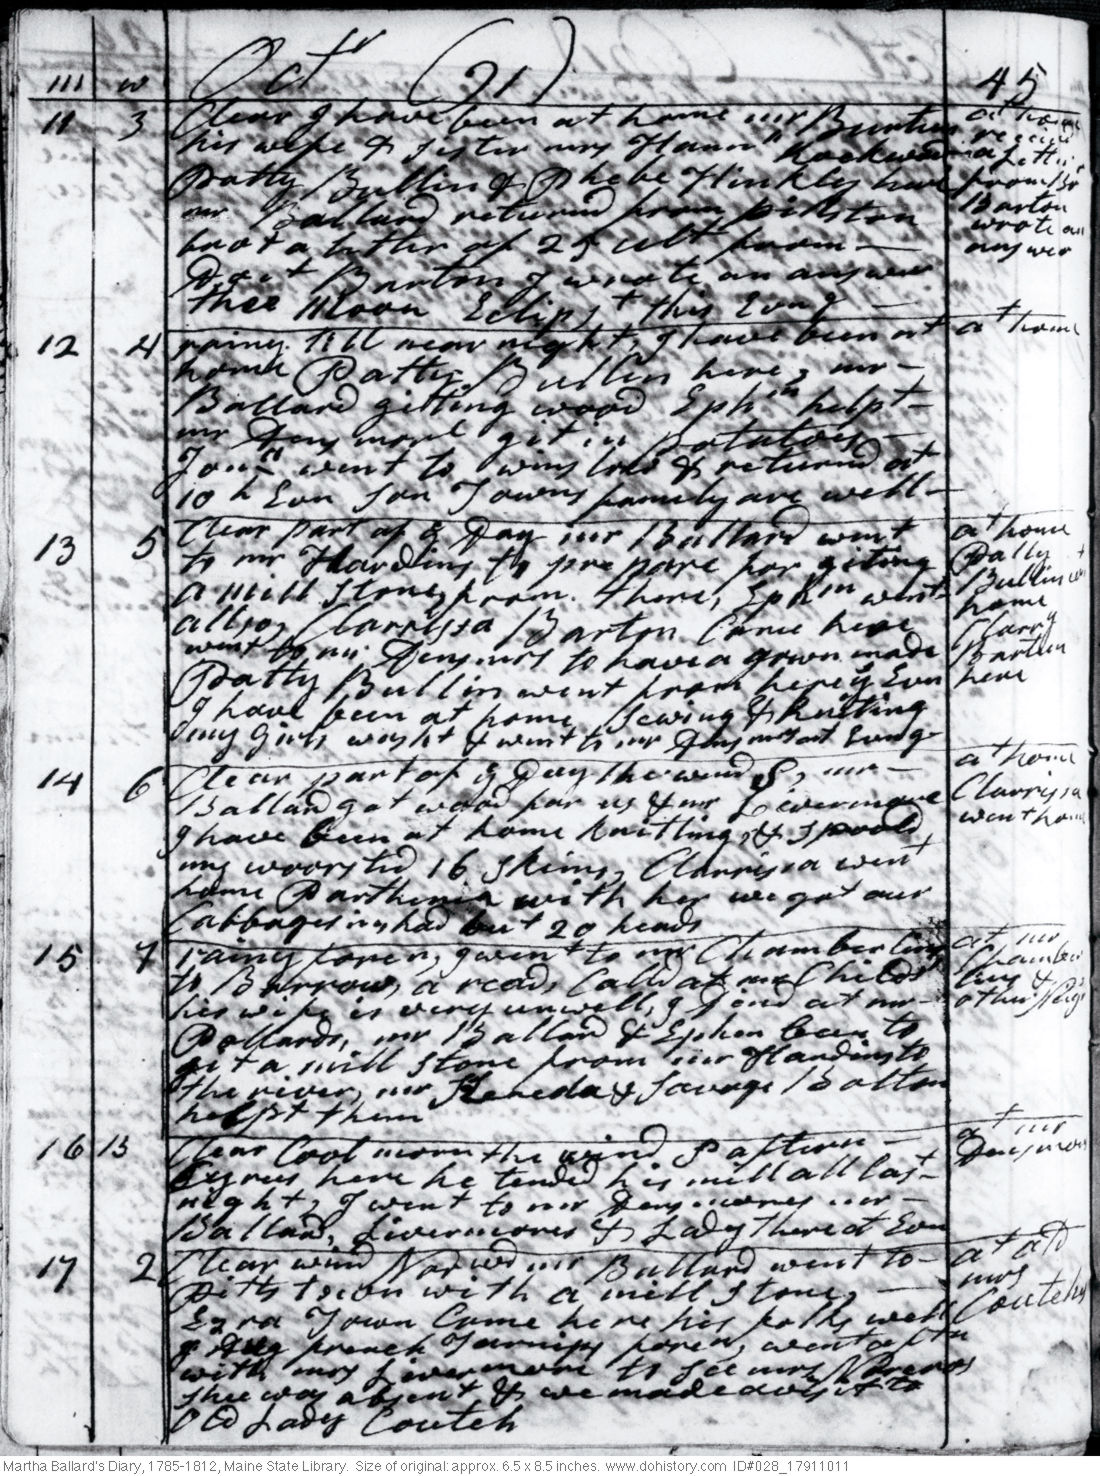 m w Octr (91) 45
11 3 Clear I have been at home mr Burtun at home
his wife & sister mrs Hannh Rockwood received
Patty Bullin & Phebe Hinkley here a letter
mr Ballard returnd from pittston from Br
brot a letter of 25 ult from Barton
Doct Barton I wrote an answer wrote an
thee Moon Eclipst this Evng answer
12 4 rainy till near night, I have been at at home
home Patty Bullin here, mr
Ballard gitting wood Ephm helpt
mr Densmore git in potatoes
Jonan went to winslow & returnd at
10 h Evn son Towns family are well
13 5 Clear part of ye Day mr Ballard went at home
to mr Hardins to prepare for giting Patty
a mill stone from there, Ephm went Bullin went
allso, Clarrissa Barton Came here home
went to mr Densmors to have a gown made Clarry
Patty Bullin went from here ys Evn Barton
I have been at home sewing & knitting here
my girls washt & went to mr Densmors at Evng
14 6 Clear part of ye Day the wind S, mr at home
Ballard got wood for us & mr Livermore Clarrissa
I have been at home knitting, & spoold went home
my woorsted 16 skins, Clarrissa went
home Parthenia with her we got our
Cabbages in, had but 20 heads
15 7 rainy foren, I went to mr Chamberlins at mr
to Borrow a read, Calld at mr Childs Chamber
his wife is very unwell, I Dind at mr lins &
Pollards, mr Ballard & Ephm been to other
git a mill stone from mr Hardins to
the river, mr & Savage Bolton
helpt them
16 13 Clear Cool morn the wind S aftern at mr
Cyrus here he tended his mill all last Densmors
night, I went to mr Densmores mr
Ballard, Livermores & Lady there at Evn
17 2 Clear wind Norwd mr Ballard went to at old
Pittstown with a mill stone, mrs
Ezra Town Came here his folks well Coutchs
I Dug french Turnips foren, went aftn
with mrs Livermore to see mrs
shee was absent & we made a visit to
Old Lady Coutch
Martha Ballard's Diary, 1785-1812, Maine State Library. Size of original: approx. 6.5 x 8.5 inches. www.dohistory.com ID#028_17911011